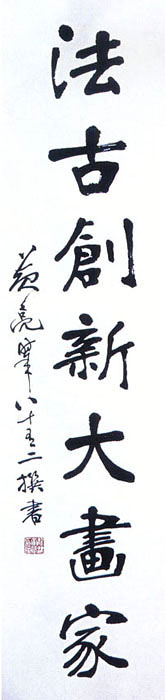 法古創新大畫家
八十有二撰書